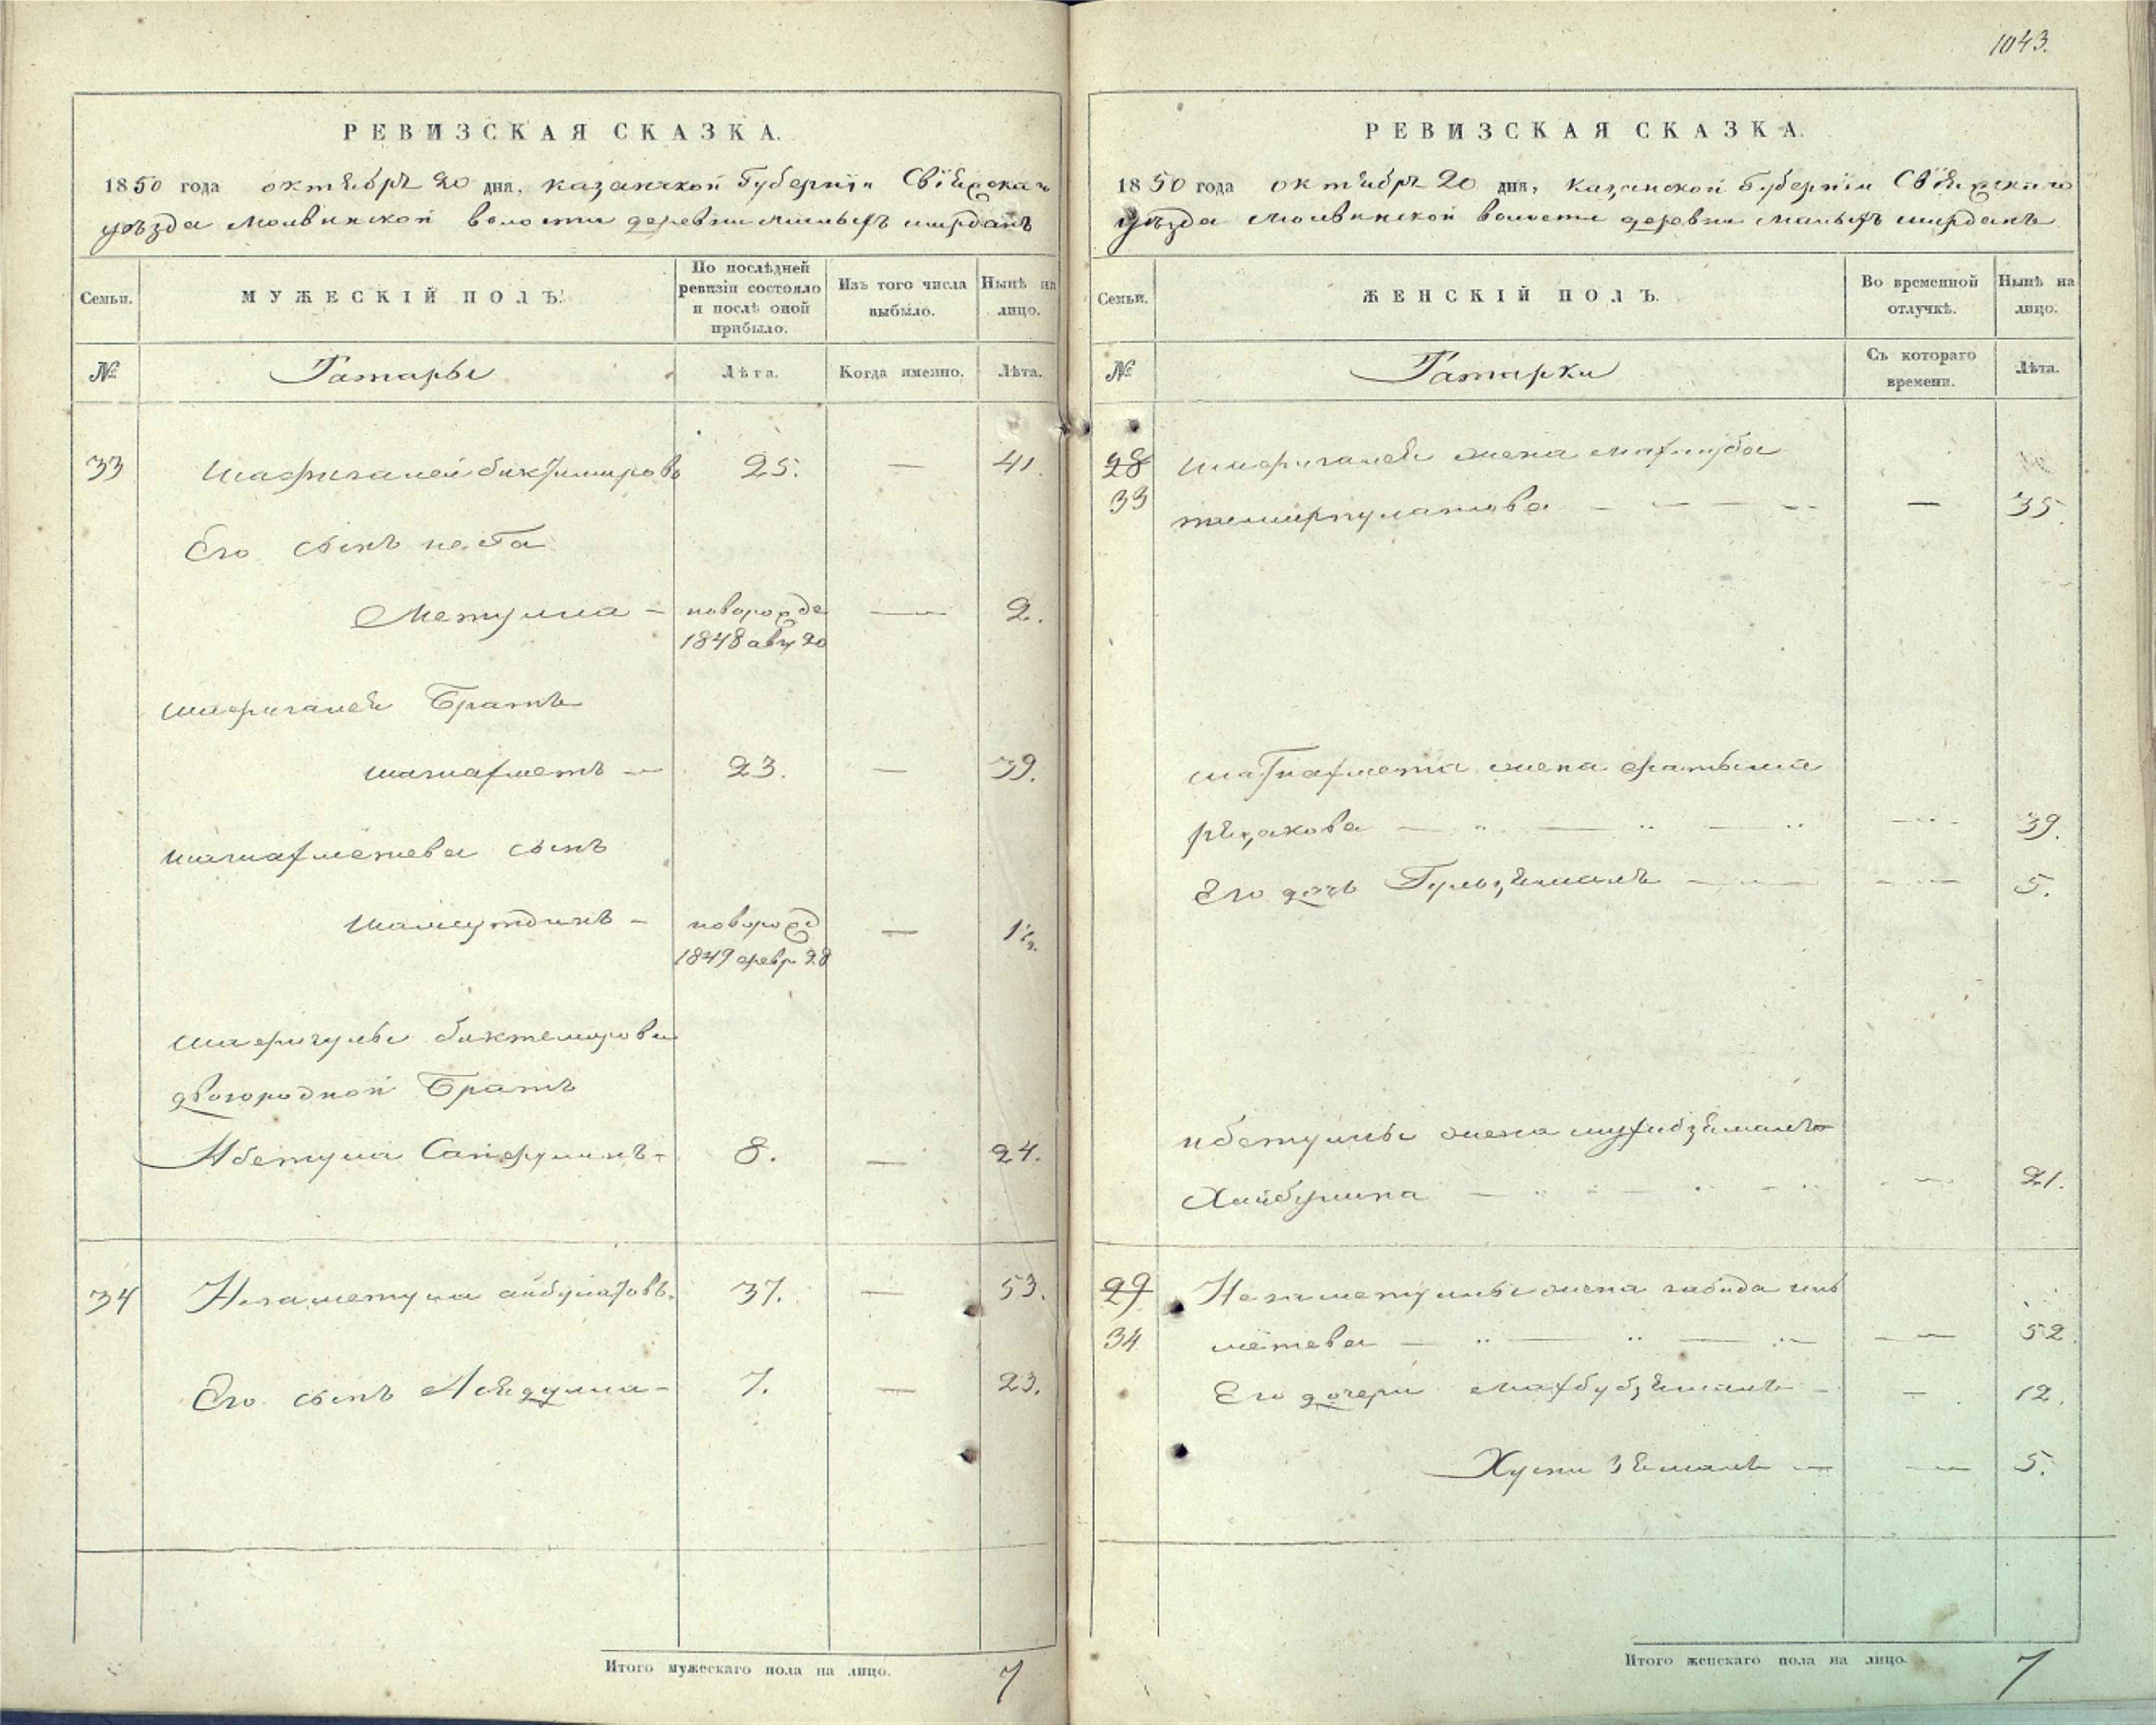 1043.
РЕВИЗСКАЯ СКАЗКА.
1850 года октября 20 дня, казанской Губерніи Свіяжскаго
уѣзда молвинской волости деревни малыхъ ширданъ
Семьи.
МУЖЕСКІЙ ПОЛЪ.
По послѣдней
ревизіи состояло
и послѣ оной
прибыло.
Изъ того числа
выбыло.
Нынѣ на
лицо.
№
Татары
Лѣта.
Когда именно.
Лѣта.
33 Шафигалей биктимировъ 25. — 41
Его сынъ
Метулла — новорожде — 2.
1848 авгу 20
шафигалея Братъ
шагиахметъ — 23. — 39.
шагиахметева сынъ
шамсутдинъ — новорожд — 1½.
1849 февр. 28
шафигуллы биктемирова
двоюродной Братъ
Абетулла Сайфулинъ — 8. — 24.
34 Незаметулла айбулатовъ. 37. — 53.
Его сынъ 7. — 23.
Итого мужескаго пола на лицо. 7
РЕВИЗСКАЯ СКАЗКА.
1850 года октября 20 дня, казанской Губерніи Свіяжскаго
уѣзда молвинской волости деревни малыхъ ширданъ
Семьи.
ЖЕНСКІЙ ПОЛЪ.
Во временной
отлучкѣ.
Нынѣ на
лицо.
№
Татарки
Съ котораго
времени.
Лѣта.
28 Шафигалея жена махлюба
33 темирпулатова — — 35.
шагиахмета жена фатыма
рѣзякова — — 39.
Его дочь Гульзямалъ — — 5.
абетуллы жена
Хайбулина — — 21.
29 Незаметуллы жена
34 метева — — 52.
Его дочери махбубзямалъ — — 12.
Хусни зямалъ — — 5.
Итого женскаго пола на лицо. 7